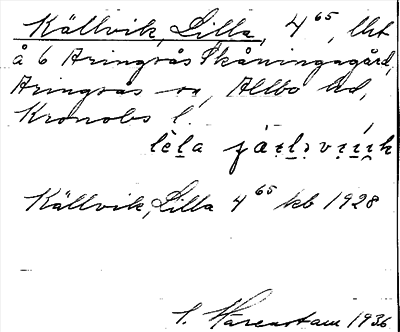 Källvik, Lilla, 4⁶⁵, lht
å 6 Aringsås Skåningagård,
Aringsås sn, Allbo hd,
Kronobs l.
Källvik, Lilla 4⁶⁵ kb 1928
S. Warenstam 1936